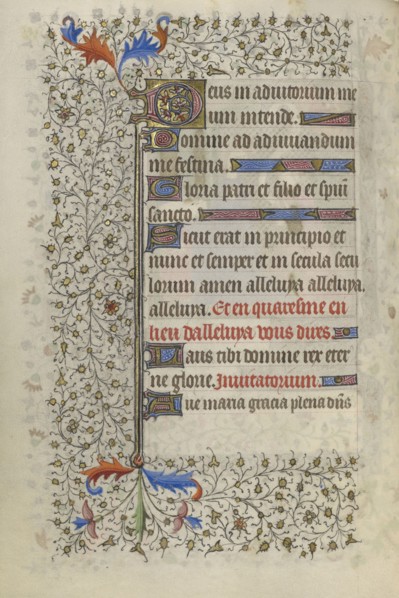 Deus in adiutorium me
um intende.
Domine ad adiuuandum
me festina.
Gloria patri et filio et spiūi
sancto.
Sicut erat in principio et
nunc et semper et in secula secu
lorum amen alleluya alleluya.
alleluya. Et en quaresme en
lieu dalleluya vous dires.
Laus tibi domine rex eter
ne glorie. Inuitatorium.
Aue maria gracia plena dn̄s